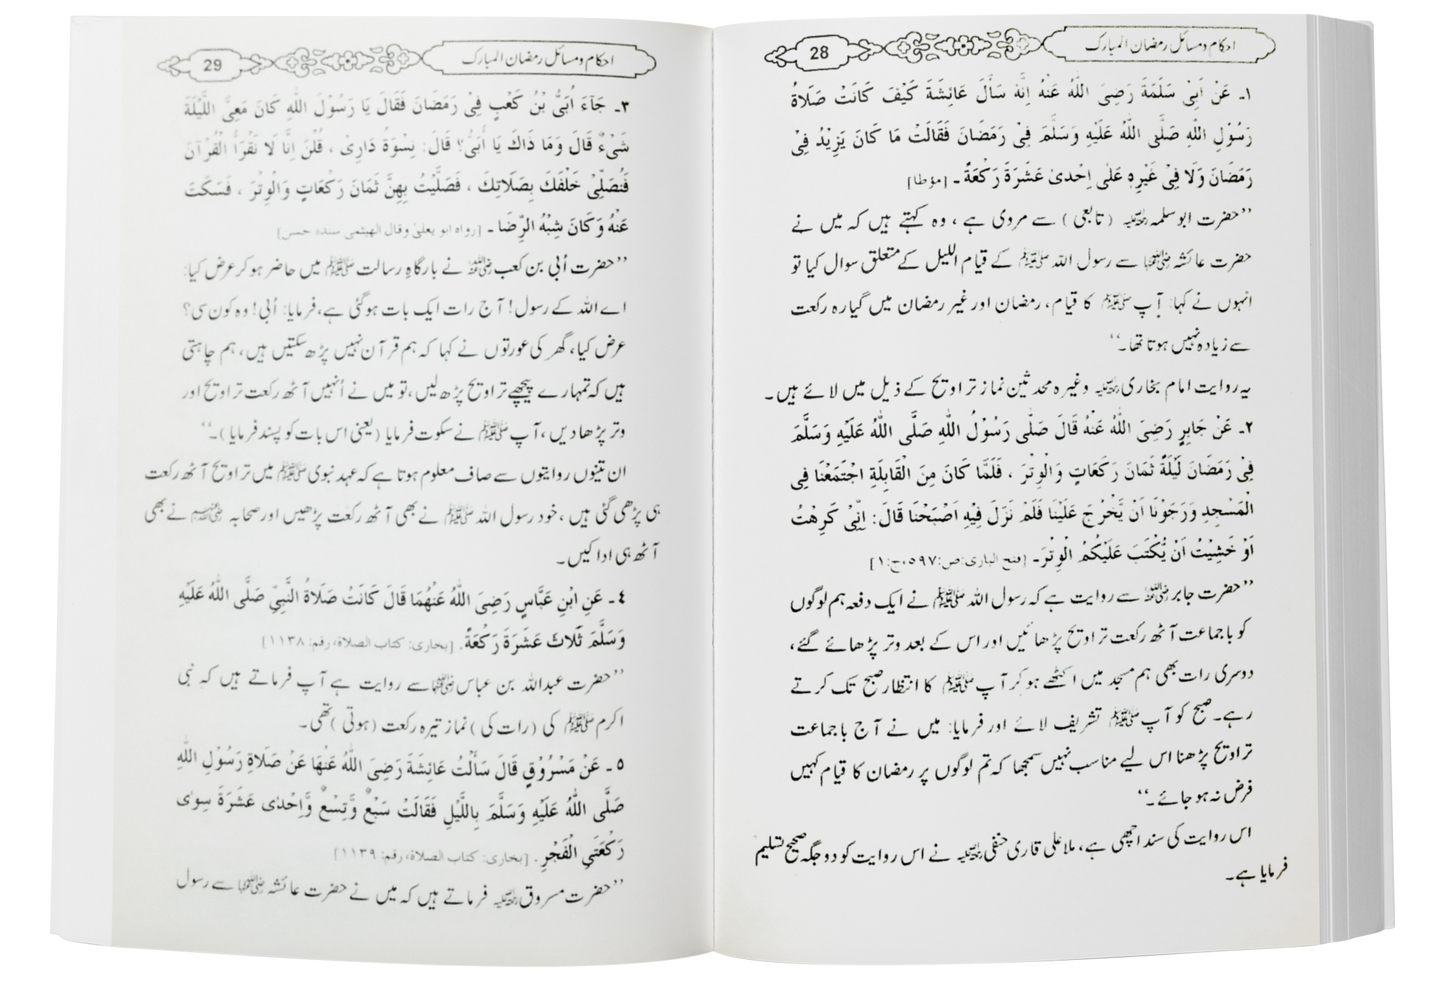 احکام ومسائل رمضان المبارک
28
۱۔ عَنْ اَبِیْ سَلَمَةَ رَضِیَ اللّٰهُ عَنْهُ اِنَّهٗ سَأَلَ عَائِشَةَ کَیْفَ کَانَتْ صَلَاةُ
رَسُوْلِ اللّٰهِ صَلَّی اللّٰهُ عَلَیْهِ وَسَلَّمَ فِیْ رَمَضَانَ فَقَالَتْ مَا کَانَ یَزِیْدُ فِیْ
رَمَضَانَ وَلَا فِیْ غَیْرِهٖ عَلٰی اِحْدیٰ عَشَرَةَ رَکْعَةً ۔ [مؤطا]
’’حضرت ابوسلمہ رحمۃ اللہ علیہ (تابعی) سے مروی ہے ، وہ کہتے ہیں کہ میں نے
حضرت عائشہ رضی اللہ عنہا سے رسول اللہ ﷺ کے قیام اللیل کے متعلق سوال کیا تو
انہوں نے کہا: آپ ﷺ کا قیام، رمضان اور غیر رمضان میں گیارہ رکعت
سے زیادہ نہیں ہوتا تھا۔‘‘
یہ روایت امام بخاری رحمۃ اللہ علیہ وغیرہ محدثین نماز تراویح کے ذیل میں لائے ہیں۔
۲۔ عَنْ جَابِرٍ رَضِیَ اللّٰهُ عَنْهُ قَالَ صَلّٰی رَسُوْلُ اللّٰهِ صَلَّی اللّٰهُ عَلَیْهِ وَسَلَّمَ
فِیْ رَمَضَانَ لَیْلَةً ثَمَانَ رَکَعَاتٍ وَالْوِتْرَ ، فَلَمَّا کَانَ مِنَ الْقَابِلَةِ اجْتَمَعْنَا فِی
الْمَسْجِدِ وَرَجَوْنَا اَنْ یَّخْرُجَ عَلَیْنَا فَلَمْ نَزَلْ فِیْهِ اَصْبَحْنَا قَالَ: اِنِّیْ کَرِهْتُ
اَوْ خَشِیْتُ اَنْ یُّکْتَبَ عَلَیْکُمُ الْوِتْرَ۔ [فتح الباری:ص:۵۹۷،ج:۱]
’’حضرت جابر رضی اللہ عنہ سے روایت ہے کہ رسول اللہ ﷺ نے ایک دفعہ ہم لوگوں
کو باجماعت آٹھ رکعت تراویح پڑھائیں اور اس کے بعد وتر پڑھائے گئے،
دوسری رات بھی ہم مسجد میں اکٹھے ہوکر آپ ﷺ کا انتظار صبح تک کرتے
رہے۔ صبح کو آپ ﷺ تشریف لائے اور فرمایا: میں نے آج باجماعت
تراویح پڑھنا اس لیے مناسب نہیں سمجھا کہ تم لوگوں پر رمضان کا قیام کہیں
فرض نہ ہو جائے۔‘‘
اس روایت کی سند اچھی ہے، ملا علی قاری حنفی رحمۃ اللہ علیہ نے اس روایت کو دو جگہ صحیح تسلیم
فرمایا ہے۔
احکام ومسائل رمضان المبارک
29
۳۔ جَآءَ اُبَیُّ بْنُ کَعْبٍ فِیْ رَمَضَانَ فَقَالَ یَا رَسُوْلَ اللّٰهِ کَانَ مَعِیَ اللَّیْلَةَ
شَیْءٌ قَالَ وَمَا ذَاكَ یَا أُبَیُّ؟ قَالَ: نِسْوَةُ دَارِیْ ، قُلْنَ اِنَّا لَا نَقْرَأُ الْقُرْآنَ
فَنُصَلِّیْ خَلْفَكَ بِصَلَاتِكَ ، فَصَلَّیْتُ بِهِنَّ ثَمَانَ رَکْعَاتٍ وَالْوِتْرَ ، فَسَکَتَ
عَنْهُ وَکَانَ شِبْهُ الرِّضَا ۔ [رواه ابو یعلیٰ وقال الهیثمی سنده حسن]
’’حضرت اُبی بن کعب رضی اللہ عنہ نے بارگاہِ رسالت ﷺ میں حاضر ہوکر عرض کیا:
اے اللہ کے رسول! آج رات ایک بات ہوگئی ہے، فرمایا: اُبی! وہ کون سی؟
عرض کیا، گھر کی عورتوں نے کہا کہ ہم قرآن نہیں پڑھ سکتیں ہیں، ہم چاہتی
ہیں کہ تمہارے پیچھے تراویح پڑھ لیں، تو میں نے اُنہیں آٹھ رکعت تراویح اور
وتر پڑھا دیں، آپ ﷺ نے سکوت فرمایا (یعنی اس بات کو پسند فرمایا)۔‘‘
ان تینوں روایتوں سے صاف معلوم ہوتا ہے کہ عہد نبوی ﷺ میں تراویح آٹھ رکعت
ہی پڑھی گئی ہیں، خود رسول اللہ ﷺ نے بھی آٹھ رکعت پڑھیں اور صحابہ نے بھی
آٹھ ہی ادا کیں۔
٤۔ عَنِ ابْنِ عَبَّاسٍ رَضِیَ اللّٰهُ عَنْهُمَا قَالَ کَانَتْ صَلَاةُ النَّبِیِّ صَلَّی اللّٰهُ عَلَیْهِ
وَسَلَّمَ ثَلَاثَ عَشَرَةَ رَکْعَةً. [بخاری: کتاب الصلاة، رقم: ۱۱۳۸]
’’حضرت عبداللہ بن عباس رضی اللہ عنہما سے روایت ہے آپ فرماتے ہیں کہ نبی
اکرم ﷺ کی (رات کی) نماز تیرہ رکعت (ہوتی) تھی۔
۵۔ عَنْ مَسْرُوْقٍ قَالَ سَأَلْتُ عَائِشَةَ رَضِیَ اللّٰهُ عَنْهَا عَنْ صَلَاةِ رَسُوْلِ اللّٰهِ
صَلَّی اللّٰهُ عَلَیْهِ وَسَلَّمَ بِاللَّیْلِ فَقَالَتْ سَبْعٌ وَّتِسْعٌ وَّاِحْدٰی عَشَرَةَ سِوٰی
رَکْعَتَیِ الْفَجْرِ. [بخاری: کتاب الصلاة، رقم: ۱۱۳۹]
’’حضرت مسروق رحمۃ اللہ علیہ فرماتے ہیں کہ میں نے حضرت عائشہ رضی اللہ عنہا سے رسول